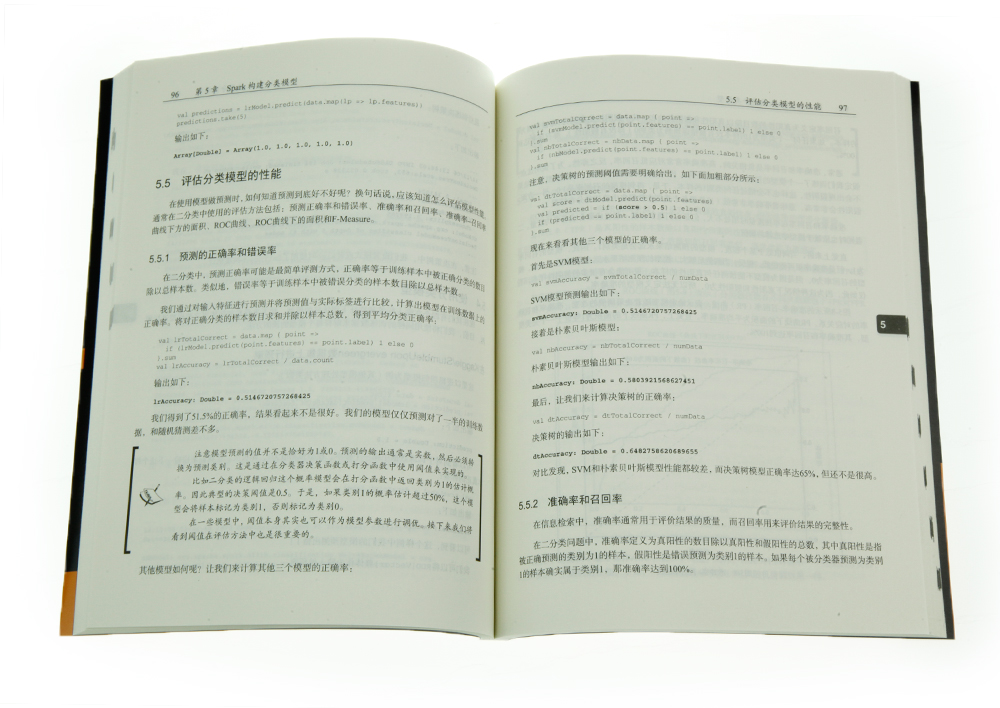 96 第 5 章 Spark 构建分类模型
val predictions = lrModel.predict(data.map(lp => lp.features))
predictions.take(5)
输出如下：
Array[Double] = Array(1.0, 1.0, 1.0, 1.0, 1.0)
5.5 评估分类模型的性能
在使用模型做预测时，如何知道预测到底好不好呢？换句话说，应该知道怎么评估模型性能。
通常在二分类中使用的评估方法包括：预测正确率和错误率、准确率和召回率、准确率–召回率
曲线下方的面积、ROC曲线、ROC曲线下的面积和F-Measure。
5.5.1 预测的正确率和错误率
在二分类中，预测正确率可能是最简单评测方式，正确率等于训练样本中被正确分类的数目
除以总样本数。类似地，错误率等于训练样本中被错误分类的样本数目除以总样本数。
我们通过对输入特征进行预测并将预测值与实际标签进行比较，计算出模型在训练数据上的
正确率。将对正确分类的样本数目求和并除以样本总数，得到平均分类正确率：
val lrTotalCorrect = data.map { point =>
if (lrModel.predict(point.features) == point.label) 1 else 0
}.sum
val lrAccuracy = lrTotalCorrect / data.count
输出如下：
lrAccuracy: Double = 0.5146720757268425
我们得到了51.5%的正确率，结果看起来不是很好。我们的模型仅仅预测对了一半的训练数
据，和随机猜测差不多。
注意模型预测的值并不是恰好为1或0。预测的输出通常是实数，然后必须转
换为预测类别。这是通过在分类器决策函数或打分函数中使用阈值来实现的。
比如二分类的逻辑回归这个概率模型会在打分函数中返回类别为1的估计概
率。因此典型的决策阈值是0.5。于是，如果类别1的概率估计超过50%，这个模
型会将样本标记为类别1，否则标记为类别0。
在一些模型中，阈值本身其实也可以作为模型参数进行调优。接下来我们将
看到阈值在评估方法中也是很重要的。
其他模型如何呢？让我们来计算其他三个模型的正确率：
5.5 评估分类模型的性能 97
val svmTotalCorrect = data.map { point =>
if (svmModel.predict(point.features) == point.label) 1 else 0
}.sum
val nbTotalCorrect = nbData.map { point =>
if (nbModel.predict(point.features) == point.label) 1 else 0
}.sum
注意，决策树的预测阈值需要明确给出，如下面加粗部分所示：
val dtTotalCorrect = data.map { point =>
val score = dtModel.predict(point.features)
val predicted = if (score > 0.5) 1 else 0
if (predicted == point.label) 1 else 0
}.sum
现在来看看其他三个模型的正确率。
首先是SVM模型：
val svmAccuracy = svmTotalCorrect / numData
SVM模型预测输出如下：
svmAccuracy: Double = 0.5146720757268425
接着是朴素贝叶斯模型：
val nbAccuracy = nbTotalCorrect / numData
朴素贝叶斯模型输出如下：
nbAccuracy: Double = 0.5803921568627451
最后，让我们来计算决策树的正确率：
val dtAccuracy = dtTotalCorrect / numData
决策树的输出如下：
dtAccuracy: Double = 0.6482758620689655
对比发现，SVM和朴素贝叶斯模型性能都较差，而决策树模型正确率达65%，但还不是很高。
5.5.2 准确率和召回率
在信息检索中，准确率通常用于评价结果的质量，而召回率用来评价结果的完整性。
在二分类问题中，准确率定义为真阳性的数目除以真阳性和假阳性的总数，其中真阳性是指
被正确预测的类别为1的样本，假阳性是错误预测为类别1的样本。如果每个被分类器预测为类别
1的样本确实属于类别1，那准确率达到100%。
5